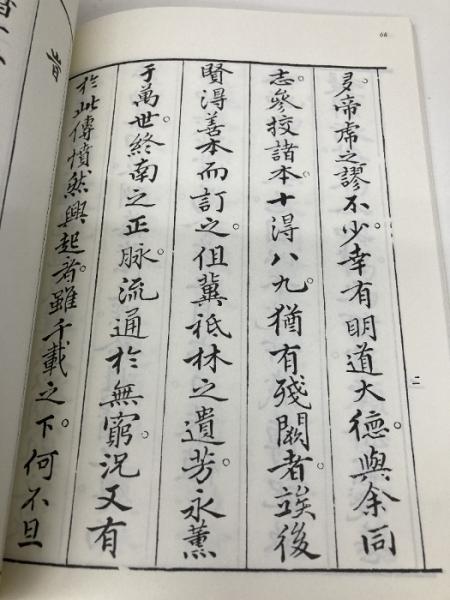 68
多帝虎之謬不少幸有明道大德與余同
志參挍諸本十得八九猶有殘闕者竢後
賢得善本而訂之但冀祇林之遺芳永薰
于萬世終南之正脉流通於無窮況又有
於此傳憤然興起者雖千載之下何不旦
二